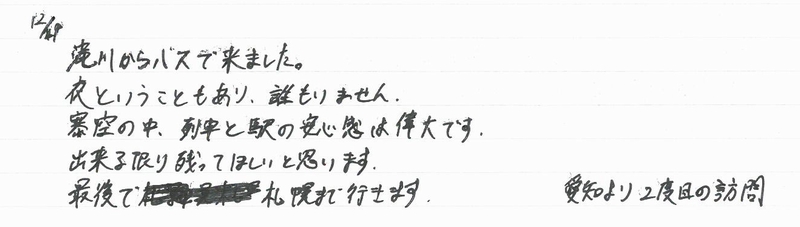 12/28
滝川からバスで来ました。
夜ということもあり、誰もいません。
寒空の中、列車と駅の安心感は偉大です。
出来る限り残ってほしいと思います。
最後で 札幌まで行きます。
愛知より 2度目の訪問